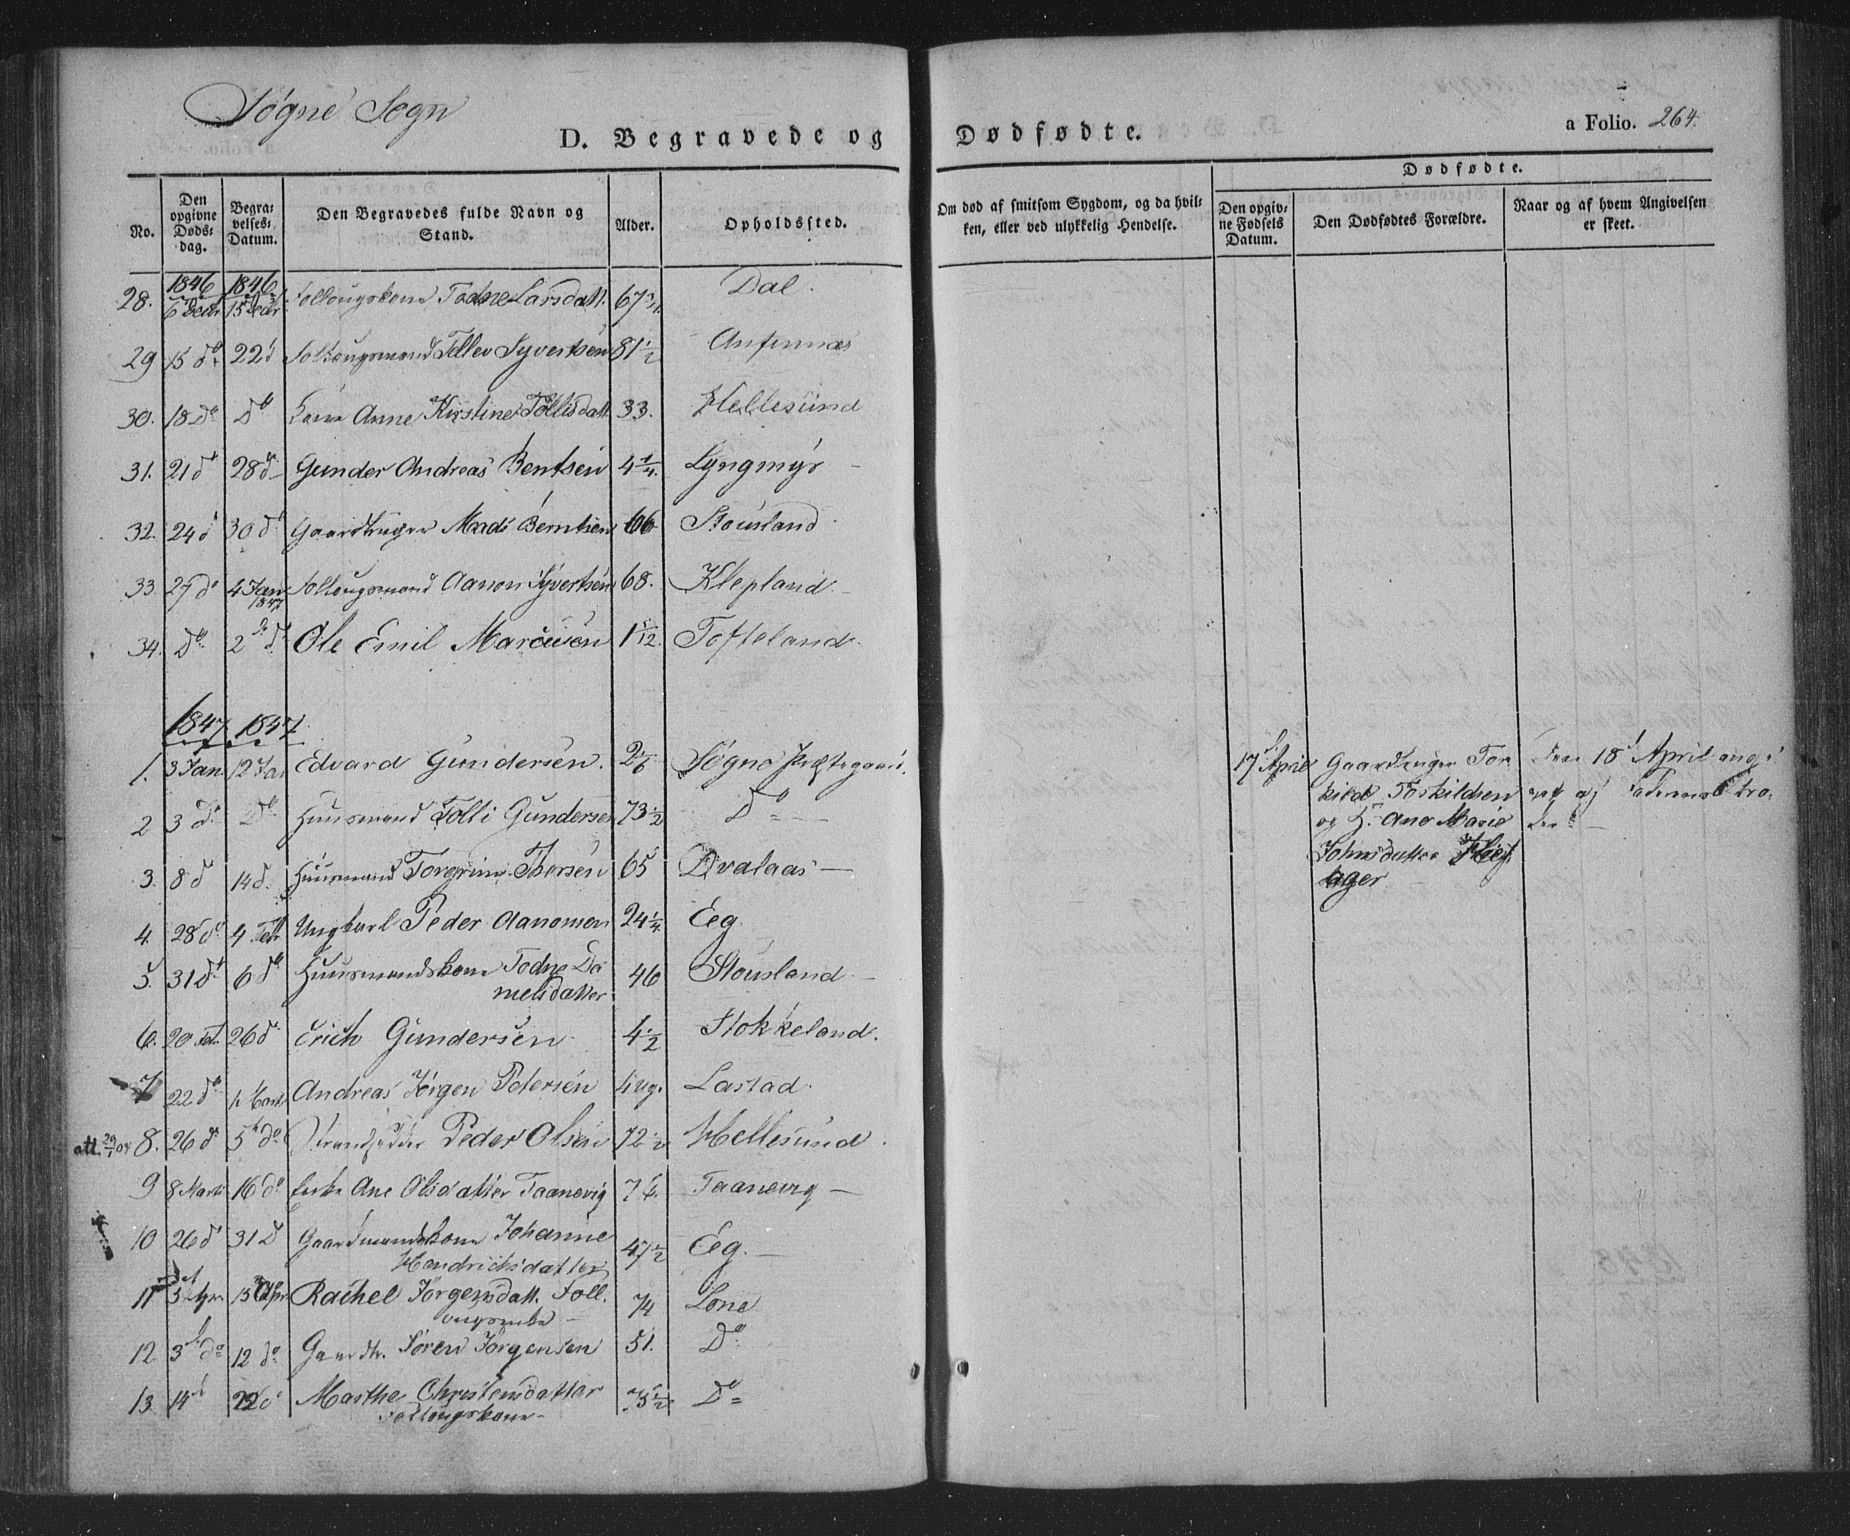 Søgne Sogn
D. Begravede og Dødfødte.
a Folio. 264.
No.
Den opgivne Døds-dag.
Begra-velses-Datum.
Den Begravedes fulde Navn og Stand.
Alder.
Opholdssted.
Om død af smitsom Sygdom, og da hvil-ken, eller ved ulykkelig Hendelse.
Dødfødte.
Den opgiv-ne Fødsels Datum.
Den Dødfødtes Forældre.
Naar og af hvem Angivelsen er skeet.
1846 1846
28. 6 Decbr 15 Decbr Follougskone Todne Larsdatt. 67 Dal.
29 15 do 22 d Follougsmand Tellev Syvertsen 81 1/2
30. 18 Do Do Kone Anne Kirstine Tollisdatt. 33. Hellesund
31. 21 do 28 d Gunder Andreas Bentsen 4 1/4. Lyngmyr
32. 24 d 30 do Gaardbruger Mads Berntsen 66 Stousland
33. 27 do 4 Jan 1847 Follougsmand Aanon Syvertsen 68. Klepland
34. Do 2 d Ole Emil Marcusen 1 /12. Tofteland
1847 1847
1. 3 Jan 12 Jan Edvard Gundersen. 2 Søgne Præstegaard.
2 3 do Do Huusmand Tolli Gundersen 73 1/2 Do
3. 8 d 14 d. Huusmand Torgrim Thorsen 65 Qvalaas
4. 28 do 4 Febr Ungkarl Peder Aanonsen 24 1/4. Eeg.
5. 31 do 6 do Huusmandskone Todne Da-
nielsdatter 46 Stousland
6. 20 Feb. 26 d Erich Gundersen 4 1/2 Stokkeland.
7 22 do 1. Marts Andreas Jørgen Petersen 4 ug. Lastad.
8. 26 d 5 do Strandsidder Peder Olsen 72 1/2 Hellesund.
9 8 Marts 16 do Enke Ane Olsdatter Taanevig 7 Taanevig
10 26 d 31 D Gaardmandskone Johanne
Hendrichsdatter 47 1/2 Eeg.
11 5 Apr 15 Apr Rachel Jørgensdatt. Foll-
ougsenke 74 Lone
12 3 do 12 do Gaardbr. Søren Jørgensen 51. Do
13. 14 22 d Marthe Christensdatter
Follougskone 75 1/2 Do
17 April Gaardbruger Tor- Den 18 April ang-
kild Torkildsen
og H. Ane Marie
Johnsdatter
ager